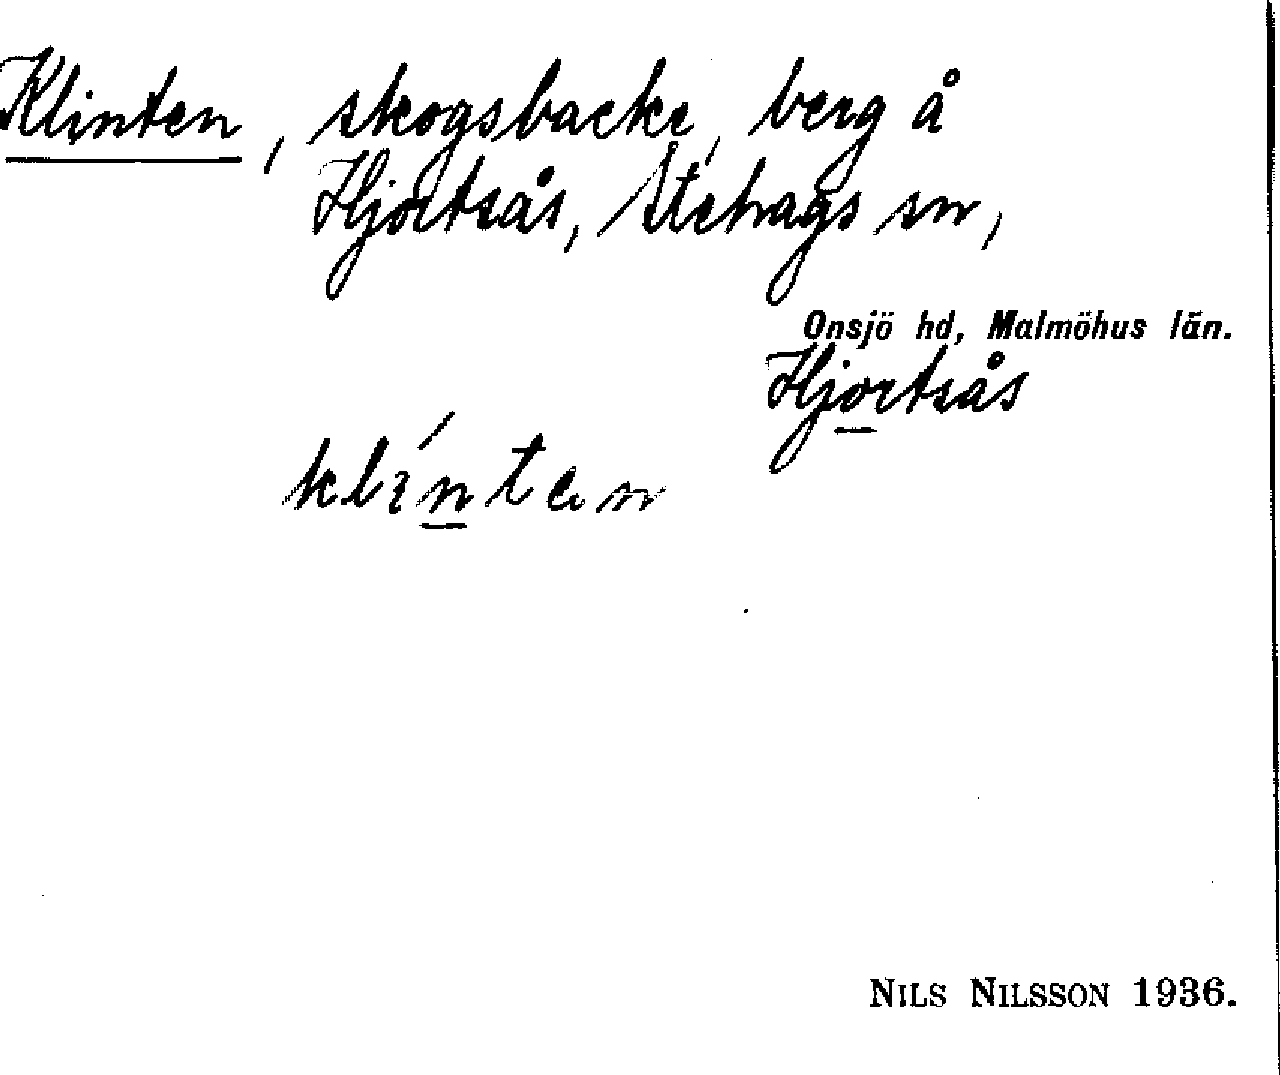 Klinten, skogsbacke, berg å
Hjortsås, Stehags sn,
Onsjö hd, Malmöhus län.
Hjortsås
klínten
NILS NILSSON 1936.